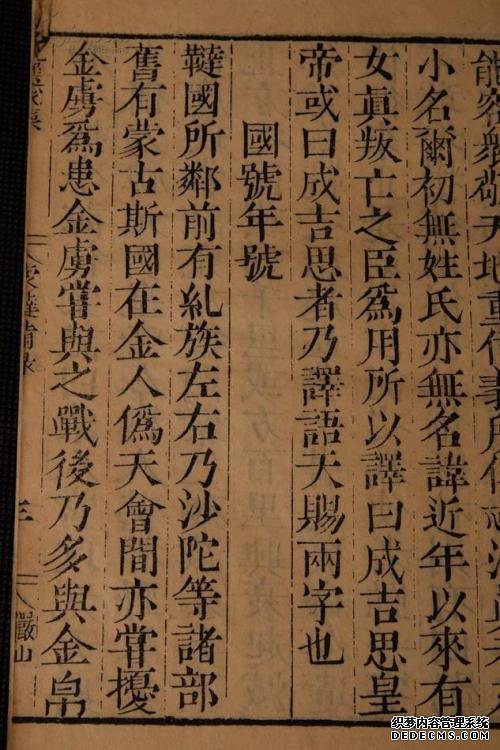 能容衆敬天地重信義所
小名爾初無姓氏亦無名諱近年以來有
女眞叛亡之臣爲用所以譯曰成吉思皇
帝或曰成吉思者乃譯語天賜兩字也
國號年號
韃國所鄰前有糺族左右乃沙陀等諸部
舊有蒙古斯國在金人僞天會間亦嘗擾
金虜爲患金虜嘗與之戰後乃多與金帛
蒙韃備錄
三
嚴山
织梦内容管理系统
DEDECMS.COM